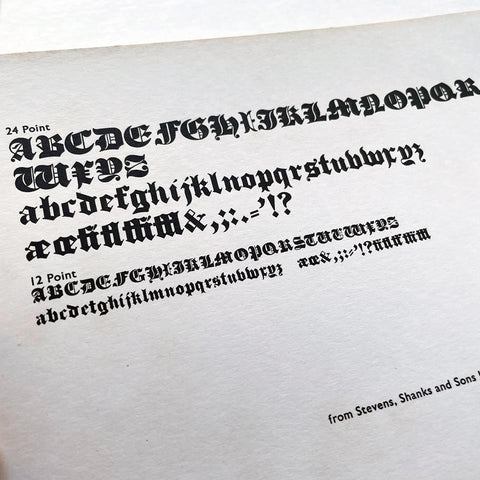 24 Point
ABCDEFGHIJKLMNOPQR
WXYZ
abcdefghijklnopqrstuvwxyz
æœfiflffffiffl&,;:.-'!?
12 Point
ABCDEFGHIJKLMNOPQRSTUVWXYZ
abcdefghijklmnopqrstuvwxyz æœ&,;:.-'!?fiflffffiffl
from Stevens, Shanks and Sons